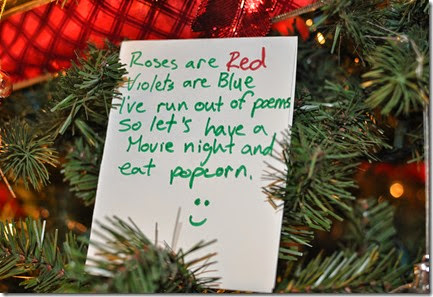 Roses are Red
Violets are Blue
I've run out of poems
So let's have a
Movie night and
eat popcorn.